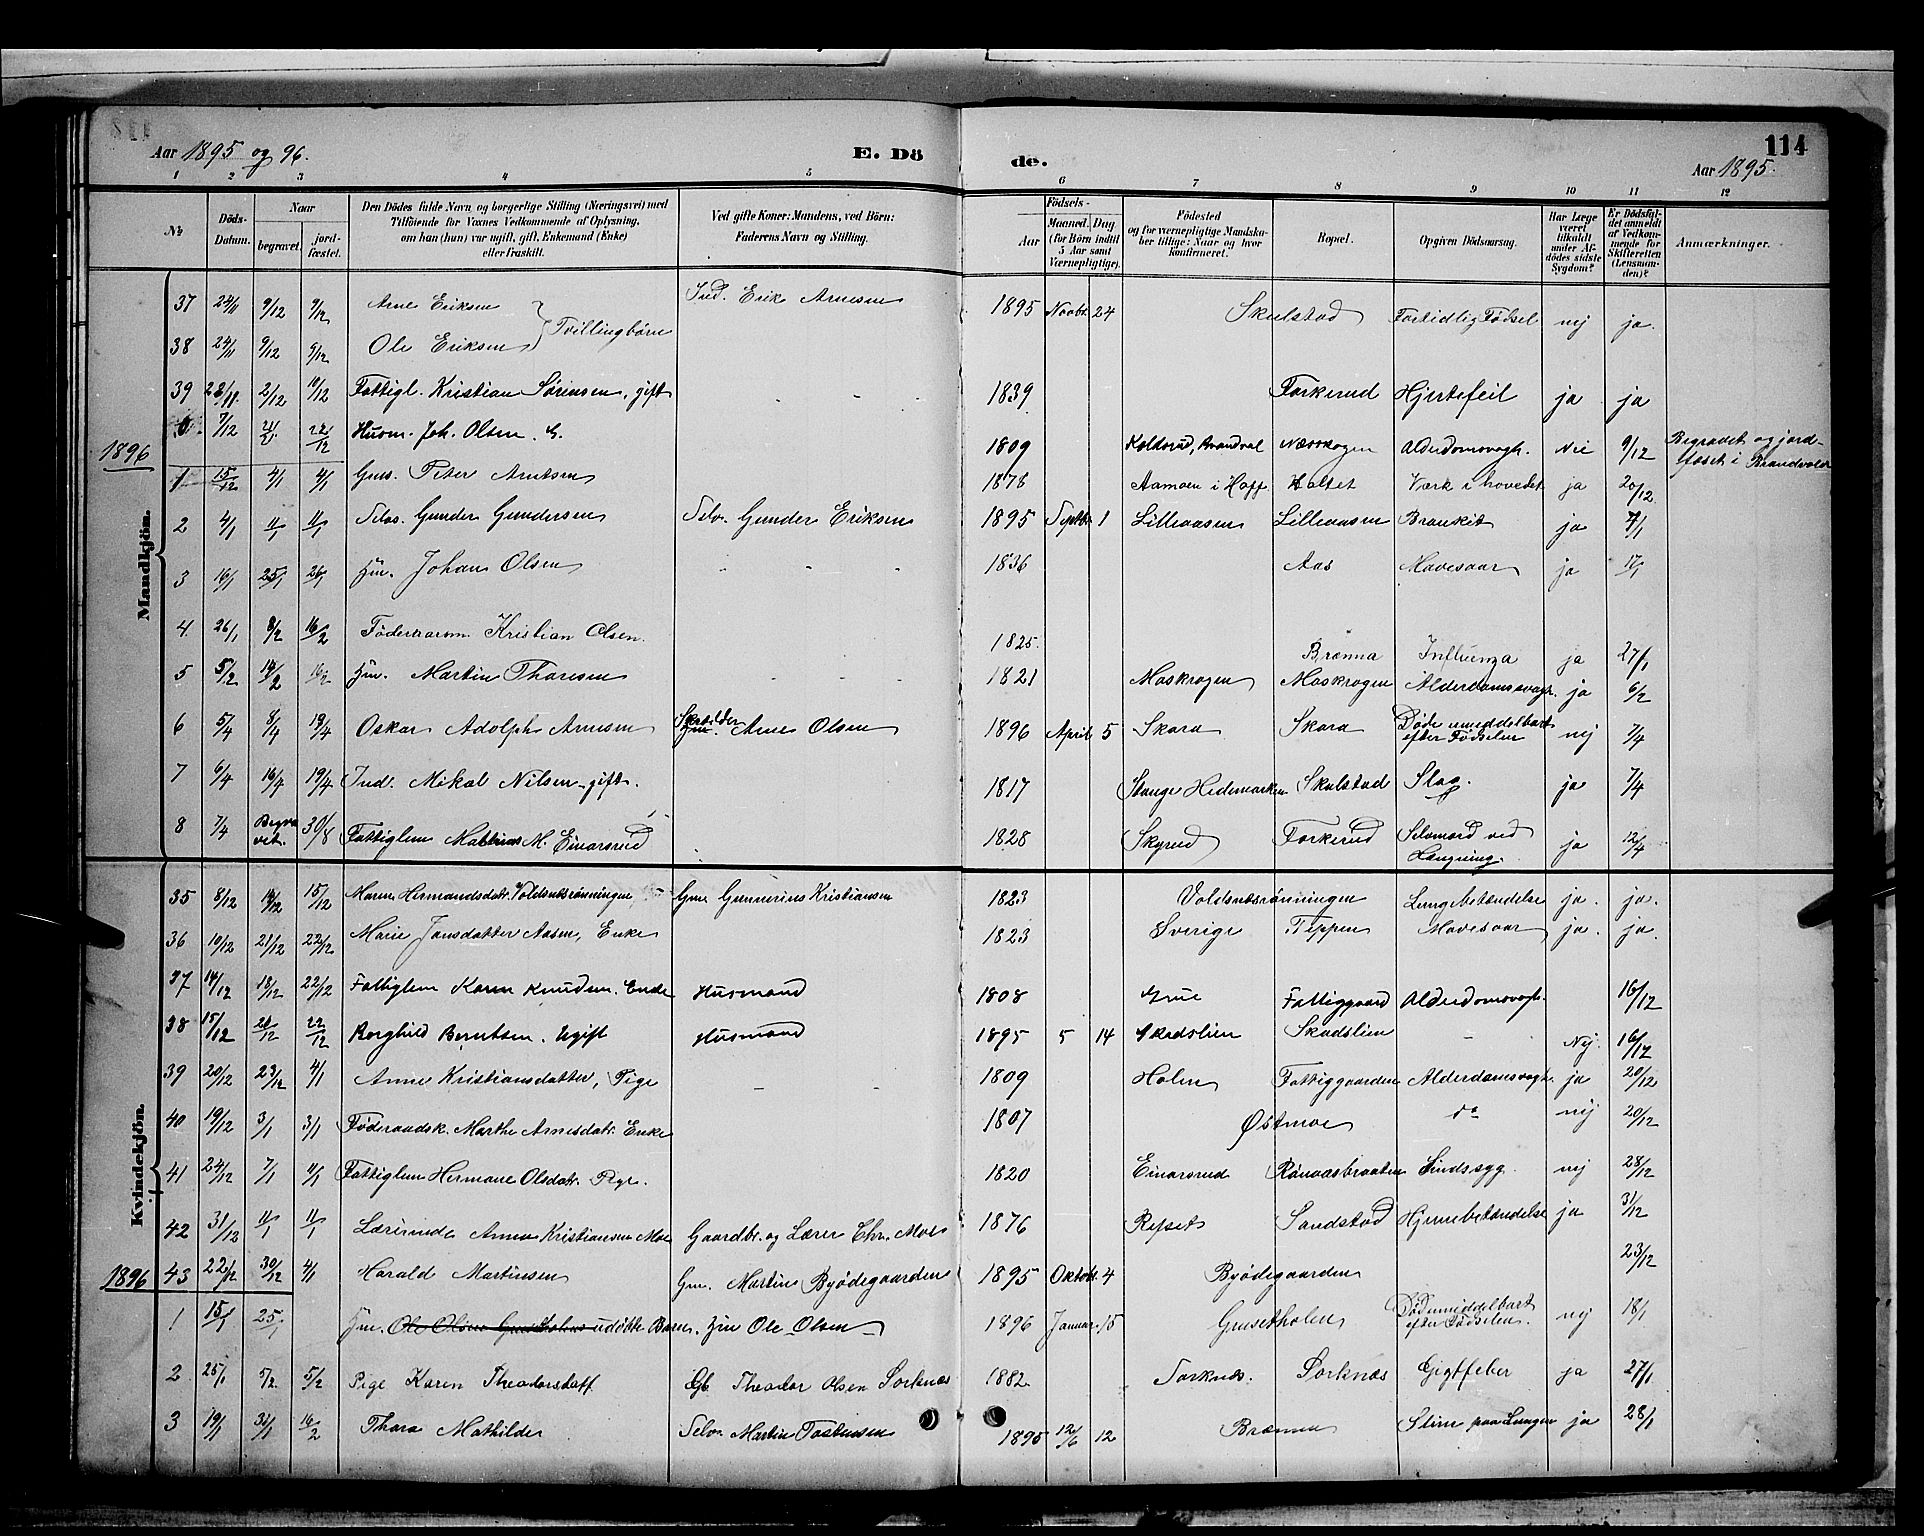 Aar 1895 og 96.
E. Dö
de.
114
Aar 1895.
1 2 3 4 5 6 7 8 9 10 11 12
№
Döds-Datum.
Naar
begravet.
jord-fæstet.
Den Dödes fulde Navn og borgerlige Stilling (Næringsvei) med
Tilföiende for Voxnes Vedkommende af Oplysning,
om han (hun) var ugift, gift, Enkemand (Enke)
eller fraskilt.
Ved gifte Koner: Mandens, ved Börn:
Faderens Navn og Stilling.
Födsels-
Aar
Maaned. Dag
(for Börn indtil
5 Aar samt
Værnepligtige).
Födested
og for værnepligtige Mandska-
ber tillige: Naar og hvor
konfirmeret.
Bopæl.
Opgiven Dödsaarsag.
Har Læge
været
tilkaldt
under Af-
dödes sidste
Sygdom?
Er Dödsfal-
det anmeldt
af Vedkom-
mende for
Skifteretten
(Lensman-
den)?
Anmærkninger.
Mandkjön.
37 24/11 9/12 9/12 Arne Eriksen } Tvillingbörn Ind. Erik Arnesen 1895 Novbr. 24 Skulstad Fortidlig Födsel nej ja.
38 24/11 9/12 9/12 Ole Eriksen
39 28/11 2/12 10/12 Fattigl. Kristian Sörensen, gift 1839 Forkerud Hjertefeil ja ja
7/12 22/12 Husm. Joh. Olsen. G. 1809 Brandval Næsskogen Alderdomsvagh. Nei 9/12 Begravet og jord-
fæset i Brandvold
1896
1 15/12 4/1 4/1 Gms. Peter Arntsen 1876 Aamoen i Hoff Holtet Værk i hovedet ja 20/12
2 4/1 11/1 11/1 Selvs. Gunder Gundersen Selv. Gunder Eriksen 1895 Septbr 1 Lilleaasen Lilleaasen Bronkit ja 7/1
3 16/1 25/1 26/1 Hm. Johan Olsen 1836 Aas Mavesaar ja 17/1
4 26/1 8/2 16/2 Föderaarsm. Kristian Olsen. 1825. Brænna Influenza ja 27/1
5 5/2 14/2 16/2 Hm. Martin Thoresen 1821 Moskrogen Moskrogen Alderdomssvagh. ja 6/2
6 5/4 8/4 19/4 Oskar Adolph Arnesen Hm. Arne Olsen 1896 April 5 Skara Skara Döde umiddelbart
efter Födselen nej 7/4
7 6/4 16/4 19/4 Ind. Mikal Nilsen - gift. 1817 Stange Hedemarken Skulstad Slag. ja 7/4
8 7/4 Begra
vet. 30/8 Fattiglem Mathias M. Einarsrud 1828 Skyrud Forkerud Selvmord ved
Hængning. ja 12/4
Kvindekjön.
35 8/12 14/12 15/12 Maren Hermandsdatr. Voldsnæsrönningen Gm. Gunnerius Kristiansen 1823 Voldsnæsrönningen Lungebetændelse ja. ja.
36 10/12 21/12 22/12 Marie Jansdatter Aasen, Enke 1823 Sverige Teppen Mavesaar ja. ja.
37 14/12 18/12 22/12 Fattiglem Karen Knudsen. Enke Husmand 1808 Grue Fattiggaard Alderdomsvagh. 16/12
38 15/12 21/12 22/12 Borghild Berntsen. Ugift Husmand 1895 5 14 Skadslien Skadslien – Nej. 16/12
39 20/12 23/12 4/1 Anne Kristiansdatter, Pige – – 1809 Holen Fattiggaarden Alderdomsvagh. ja 20/12
40 19/12 3/1 3/1 Föderaadsk. Marthe Arnesdatr. Enke 1807 Østmoe do nej 20/12
41 24/12 7/1 11/1 Fattiglem Hermane Olsdatr. Pige. 1820 Einarsrud Rönaasbraaten Sindssyg. nej 28/12
42 31/12 11/1 11/1 Lærerinde Anna Kristiansen Moe Gaardbr. og Lærer Chr. Moe 1876 Repet Sandstad Hjernebetændelse ja 31/12
1896
43 22/12 30/12 4/1 Harald Martinsen Gm. Martin Byödegaarden 1895 Oktobr. 4 Byödegaarden 23/12
1 15/1 25/1 Hm. Ole Olsen udöbte Barn. Hm Ole Olsen 1896 Januar. 15 Grusetholen Död umiddelbart
efter Födselen. nej 18/1
2 25/1 5/2 5/2 Pige Karen Theodorsdatt Gb. Theodor Olsen Sorknæs 1882 Sorknæs. Sorknæs Gigtfeber ja 27/1
3 19/1 31/1 16/2 Thora Mathilde Selv. Martin Tostensen 1895 12/6 12 Brænna Slim paa Lungen ja 28/1